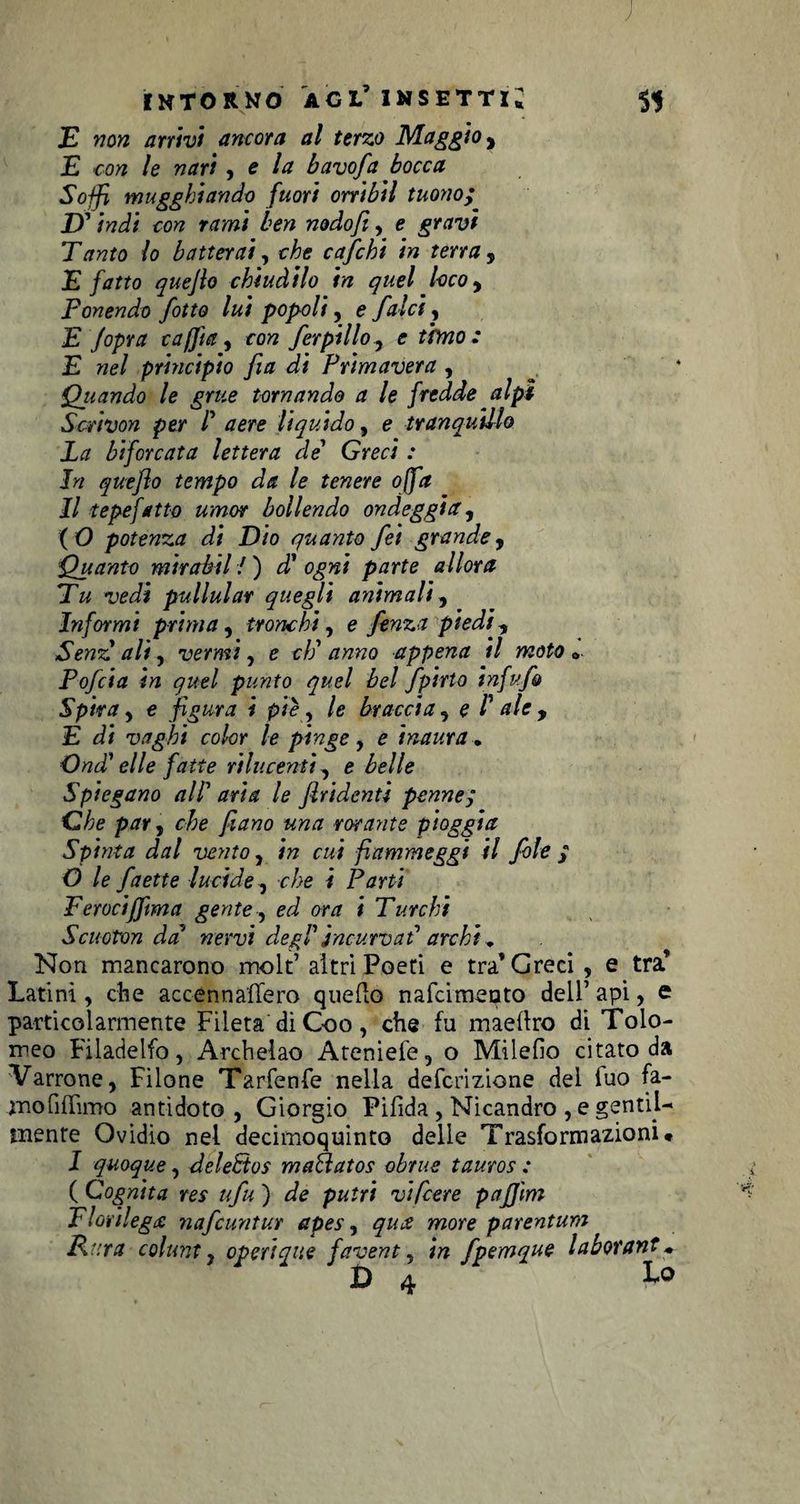 INTORNO AGL' INSETTI. 55
E non arrivi ancora al terzo Maggio,
E con le nari, e la bavoſa bocca
Soffi mugghiando fuori orribil tuono;
D' indi con rami ben nodoſi, e gravi
Tanto lo batterai, che caſchi in terra,
E fatto queſto chiudilo in quel loco,
Ponendo ſotto lui popoli, e ſalci,
E ſopra caſſia, con ſerpillo, e timo:
E nel principio ſia di Primavera,
Quando le grue tornando a le fredde alpi
Scrivon per l' aere liquido, e tranquillo
La biforcata lettera de' Greci:
In queſto tempo da le tenere oſſa
Il tepefatto umor bollendo ondeggia,
(O potenza di Dio quanto ſei grande,
Quanto mirabil!) d' ogni parte allora
Tu vedi pullular quegli animali,
Informi prima, tronchi, e ſenza piedi,
Senz' ali, vermi, e ch' anno appena il moto.
Poſcia in quel punto quel bel ſpirto infuſo
Spira, e figura i piè, le braccia, e l' ale,
E di vaghi color le pinge, e inaura.
Ond' elle fatte rilucenti, e belle
Spiegano all' aria le ſtridenti penne;
Che par, che ſiano una rorante pioggia
Spinta dal vento, in cui fiammeggi il ſole;
O le ſaette lucide, che i Parti
Ferociſſima gente, ed ora i Turchi
Scuoton da' nervi degl' incurvat' archi.
Non mancarono molt' altri Poeti e tra' Greci, e tra'
Latini, che accennaſſero queſto naſcimento dell' api, e
particolarmente Fileta di Coo, che fu maeſtro di Tolo-
meo Filadelfo, Archelao Atenieſe, o Mileſio citato da
Varrone, Filone Tarſenſe nella deſcrizione del ſuo fa-
moſiſſimo antidoto, Giorgio Piſida, Nicandro, e gentil-
mente Ovidio nel decimoquinto delle Trasformazioni.
I quoque, delectos mactatos obrue tauros:
(Cognita res uſu) de putri viſcere paſſim
Florilegæ naſcuntur apes, quæ more parentum
Rura colunt, operique favent, in ſpemque laborant.
D 4 Lo